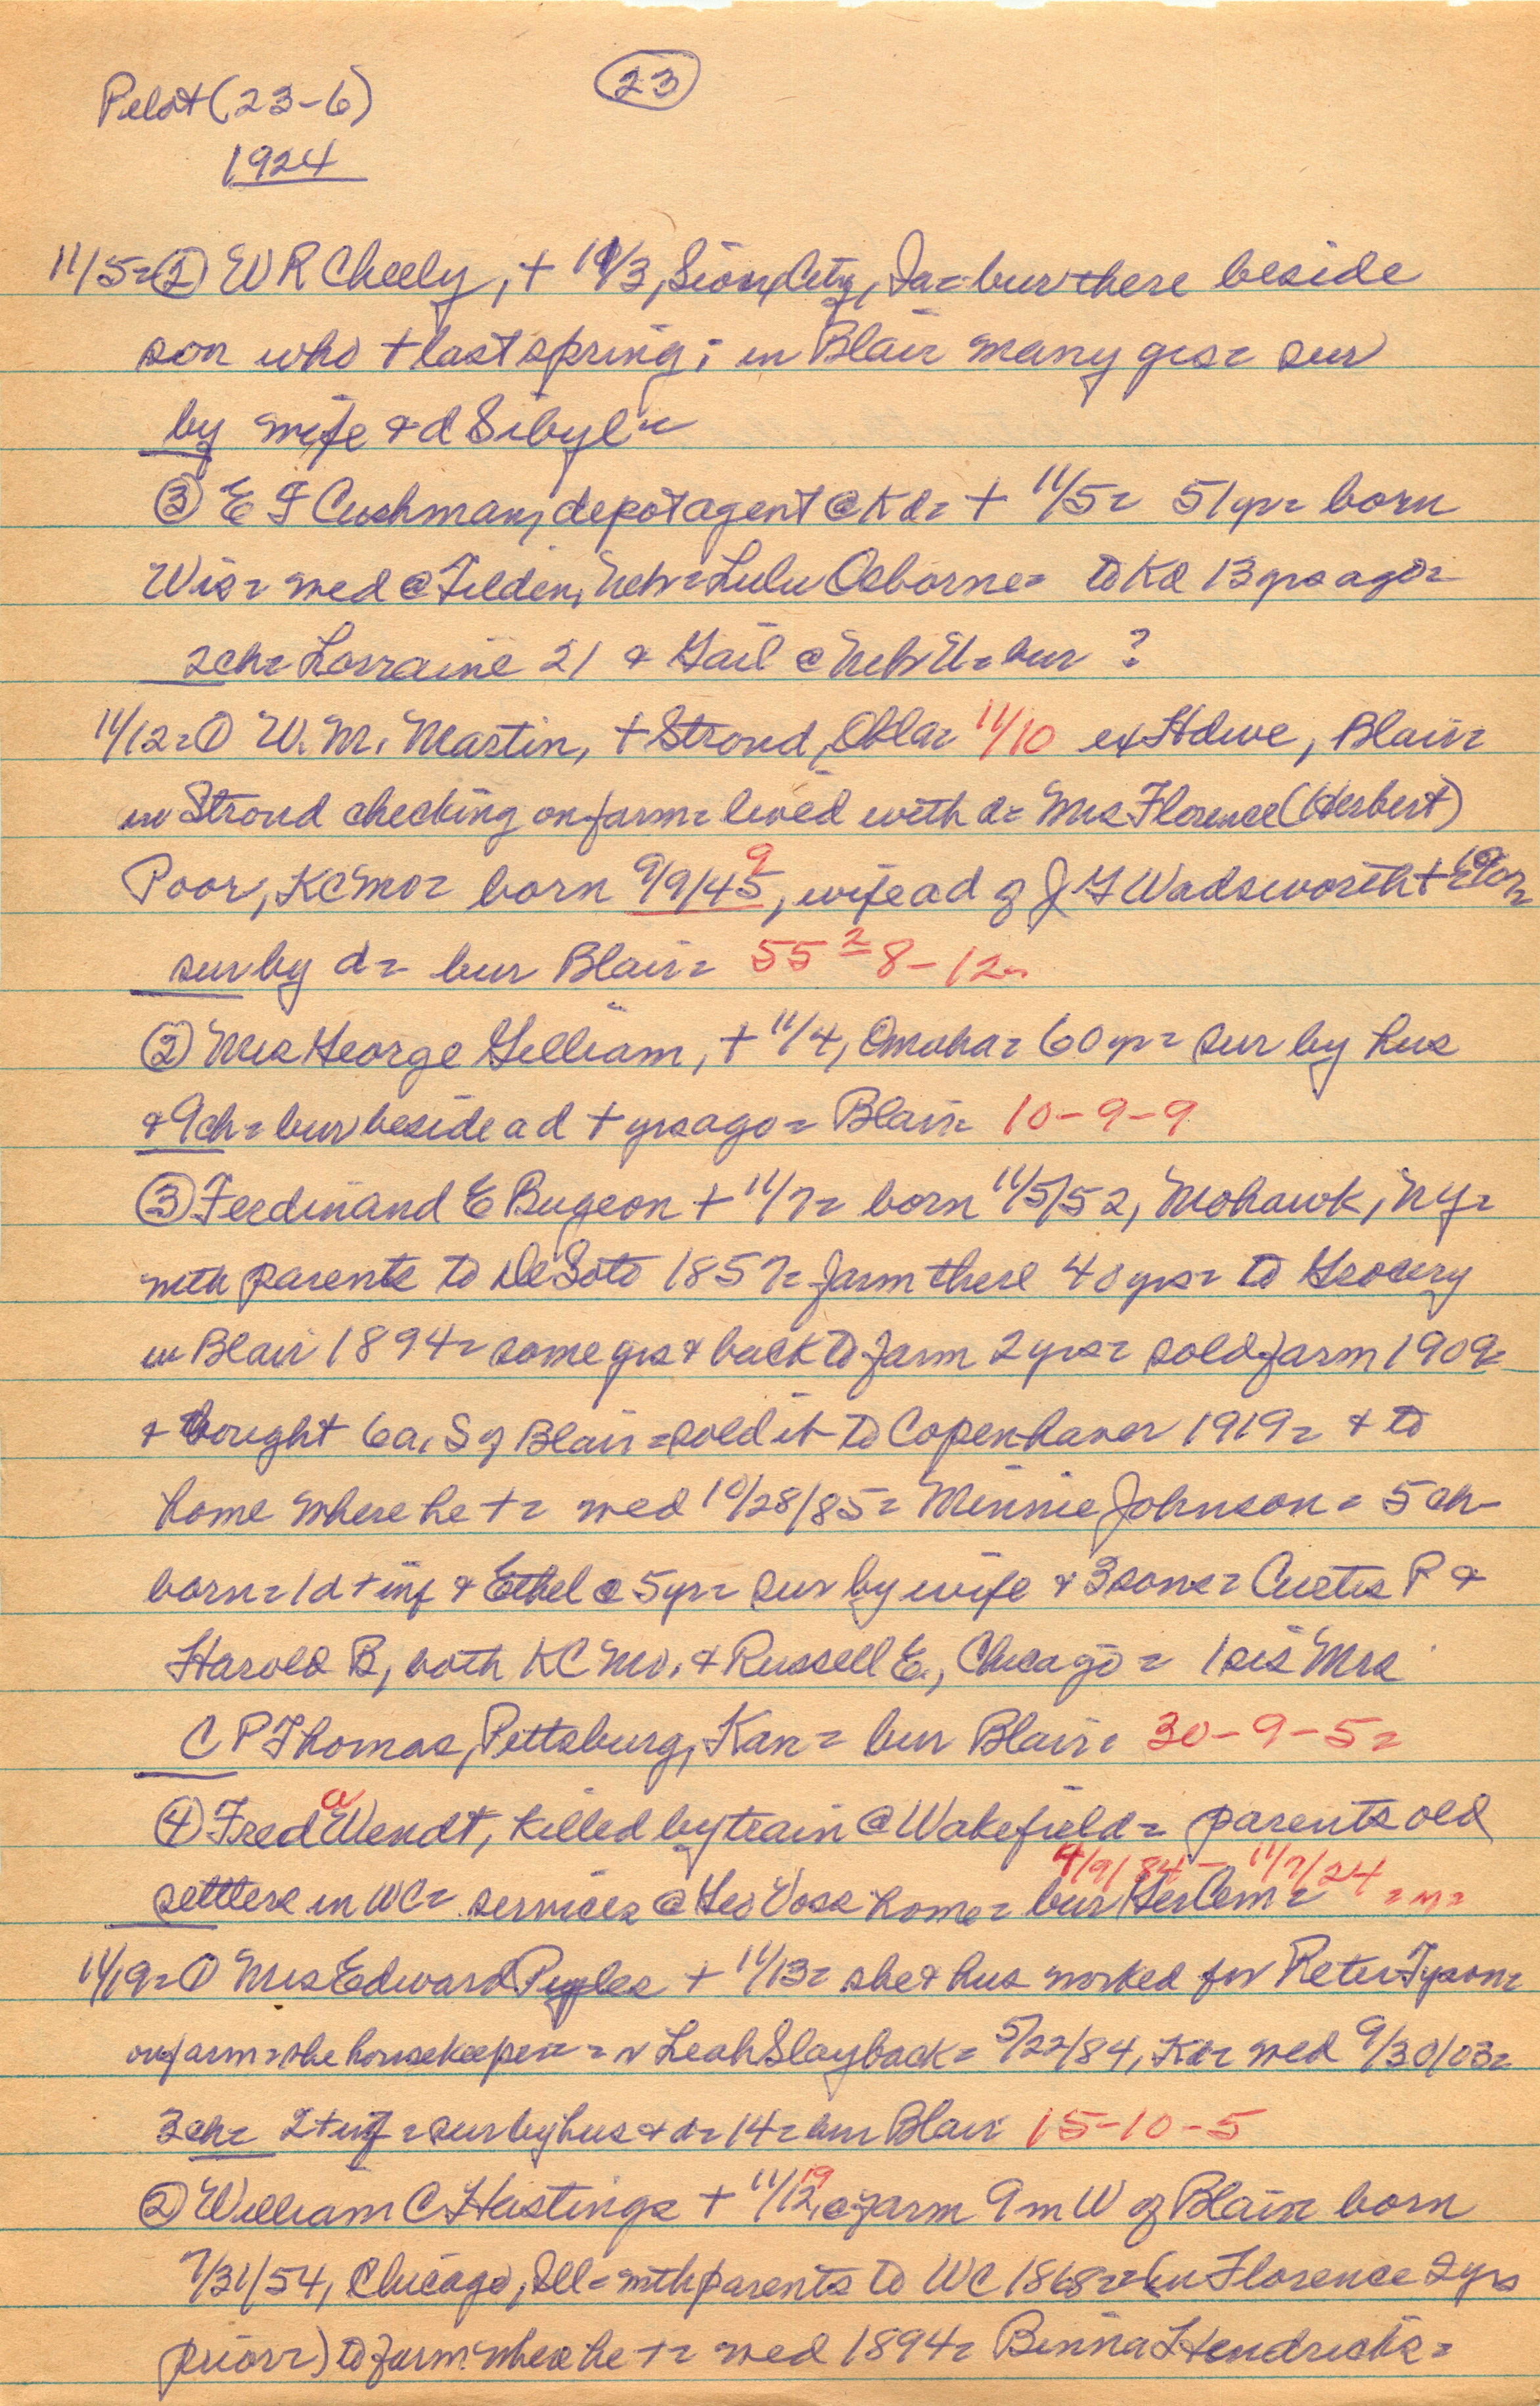 Pilot (23-6)
23
1924
11/5= ② W R Cheely, + 11/3, Sioux City, Ia= bur there beside
son who + last spring; in Blair many yrs= sur
by wife & d Sibyl=
③ E F Cushman, depot agent @ Kd= + 11/5= 51 yr= born
Wis= wed @ Tilden, Neb= Lulu Osborne= to Kd 13 yrs ago=
2ch= Lorraine 21 & Gail @ Neb U= bur ?
11/12= ① W. M. Martin, + Stroud, Okla= 11/10 ex Hdwe, Blair=
in Stroud checking on farm= lived with d= Mrs Florence (Herbert)
Poor, KC Mo= born 9/9/45 9, wife a d of J G Wadsworth +
sur by d= bur Blair= 55=2=8-12=
② Mrs George Gilliam, + 11/4, Omaha= 60 yr= sur by hus
& 9ch= bur beside a d + yrs ago= Blair= 10-9-9
③ Ferdinand E Bugeon + 11/7= born 11/5/52, Mohawk, NY=
with parents to DeSoto 1857= farm there 40 yrs= to Grocery
in Blair 1894= some yrs & back to farm 2 yrs= sold farm 1909=
& bought 6a, S of Blair= sold it to Copenhaver 1919= & to
home where he += wed 10/28/85= Minnie Johnson= 5 ch-
born= 1 d + inf & Ethel @ 5 yr= sur by wife & 3 sons= Curtis P &
Harold B, both KC Mo, & Russell E., Chicago= 1 sis Mrs
C P Thomas, Pittsburg, Kan= bur Blair= 30-9-5=
④ Fred a Wendt, killed by train @ Wakefield= parents old
4/9/84 - 11/7/24
settlers in WC= services @ Geo Voss home= bur Her Cem= =m=
11/19= ① Mrs Edward Peoples + 11/13= she & hus worked for Peter Tyson=
on farm= she housekeeper= =n Leah Slayback= 5/22/84, Kd= wed 9/30/03=
3ch= 2 + inf= sur by hus & d= 14= bur Blair 15-10-5
② William C Hastings + 11/12 19, @ farm 9 m W of Blair= born
7/31/54, Chicago, Ill= with parents to WC 1868= (in Florence 2 yrs
prior=) to farm where he += wed 1894= Benina Hendricks=